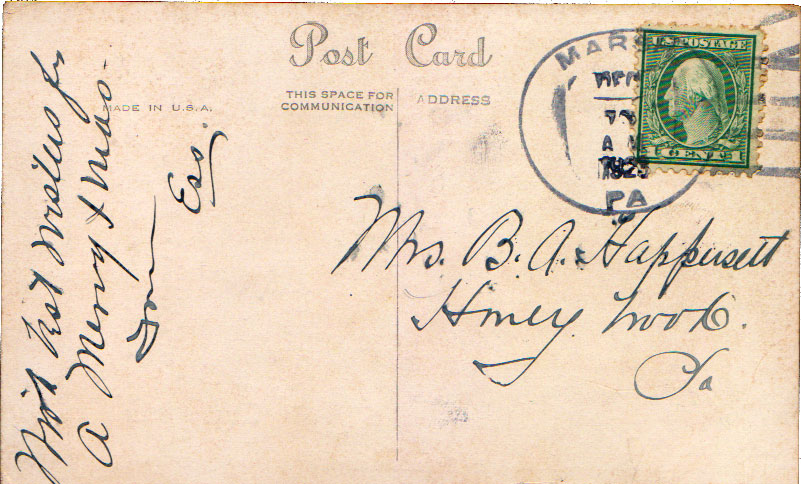 Post Card
THIS SPACE FOR
COMMUNICATION
ADDRESS
MADE IN U.S.A.
MARS
PA
1925
U.S. POSTAGE
1 CENT 1
With best wishes for
a Merry Xmas.
Esq.
Mrs. B. A. Happersett
Honey Brook.
Pa